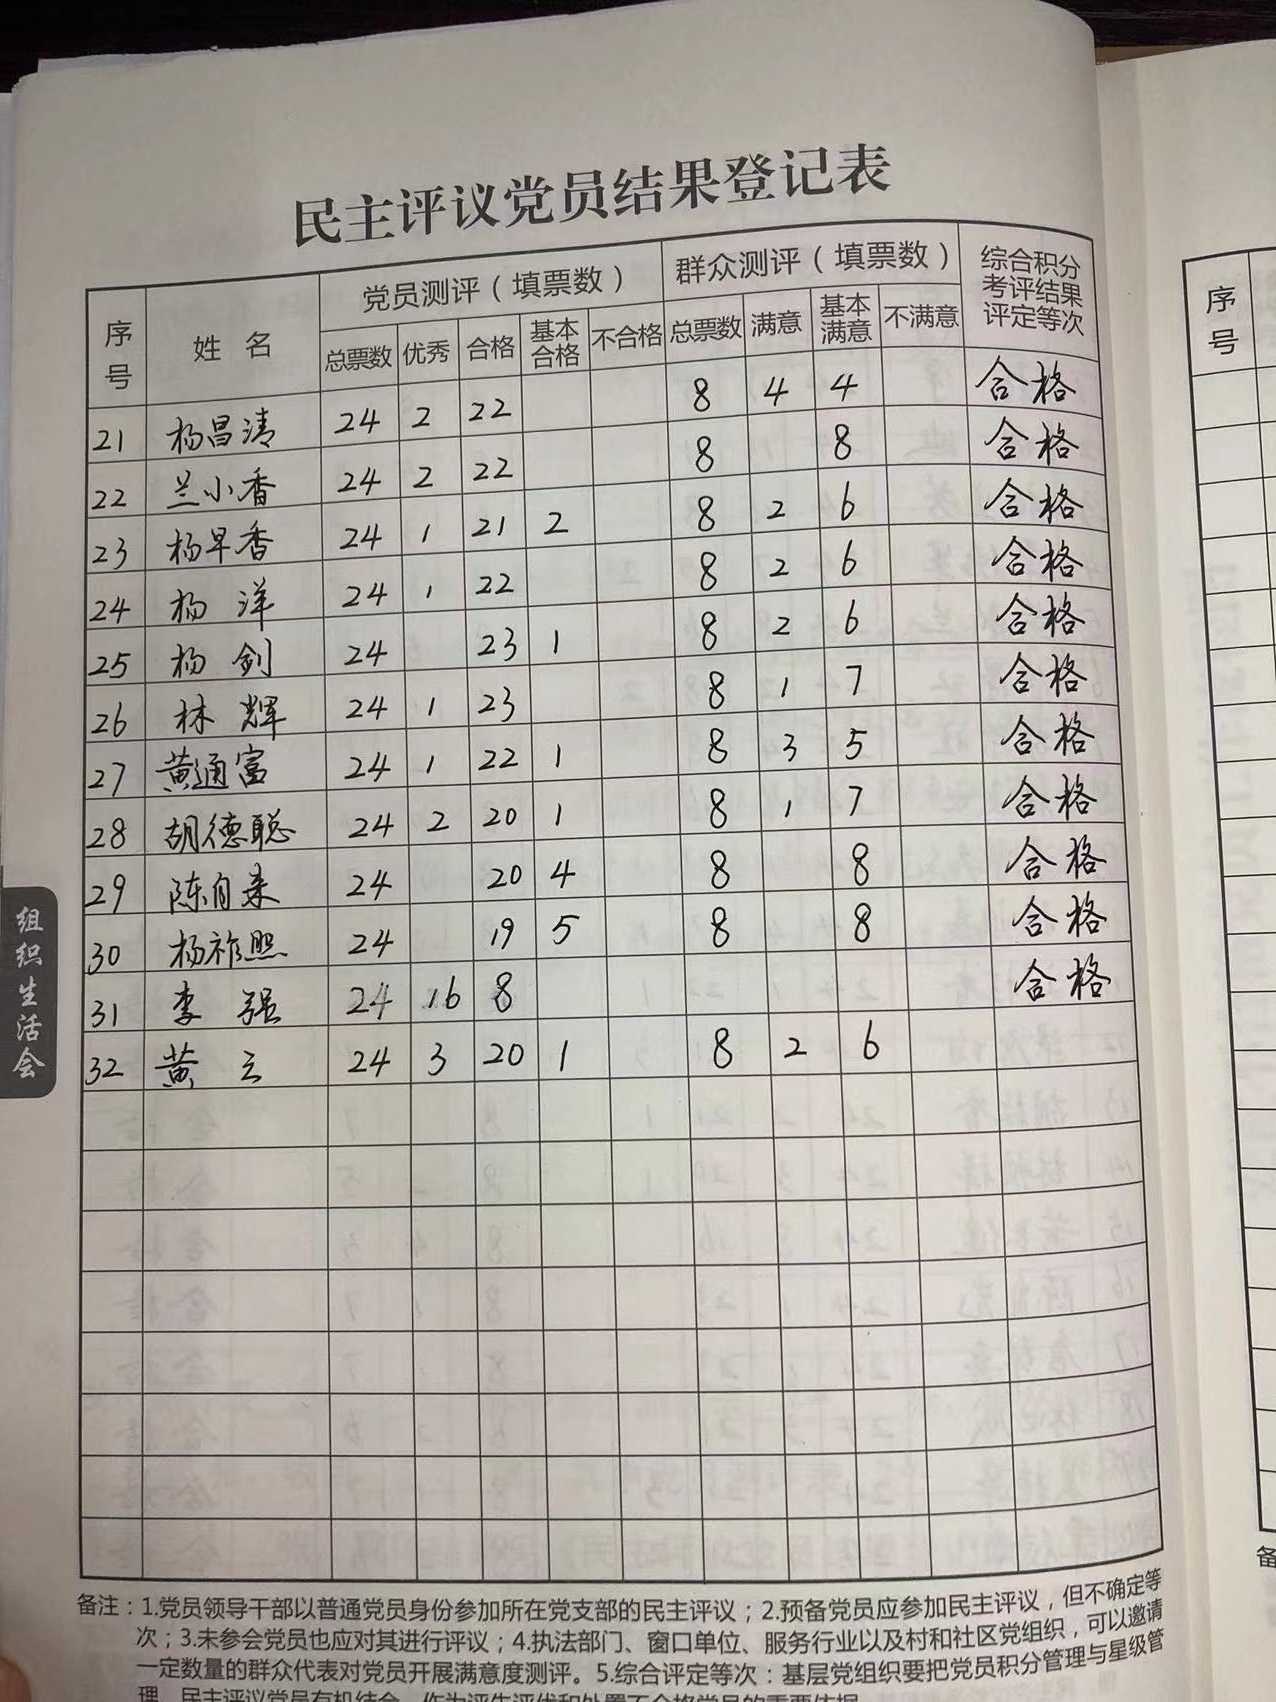 民主评议党员结果登记表
序号 姓名 党员测评（填票数） 群众测评（填票数） 综合积分考评结果评定等次
总票数 优秀 合格 基本合格 不合格 总票数 满意 基本满意 不满意
21 杨昌清 24 2 22 8 4 4 合格
22 兰小香 24 2 22 8 8 合格
23 杨早香 24 1 21 2 8 2 6 合格
24 杨洋 24 1 22 8 2 6 合格
25 杨剑 24 23 1 8 2 6 合格
26 林辉 24 1 23 8 1 7 合格
27 黄通富 24 1 22 1 8 3 5 合格
28 胡德聪 24 2 20 1 8 1 7 合格
29 陈自来 24 20 4 8 8 合格
30 杨祚熙 24 19 5 8 8 合格
31 李强 24 16 8 合格
32 黄云 24 3 20 1 8 2 6
组织生活会
备注：1.党员领导干部以普通党员身份参加所在党支部的民主评议；2.预备党员应参加民主评议，但不确定等
次；3.未参会党员也应对其进行评议；4.执法部门、窗口单位、服务行业以及村和社区党组织，可以邀请
一定数量的群众代表对党员开展满意度测评。5.综合评定等次：基层党组织要把党员积分管理与星级管
理、民主评议党员有机结合，作为评先评优和处置不合格党员的重要依据
序号
备